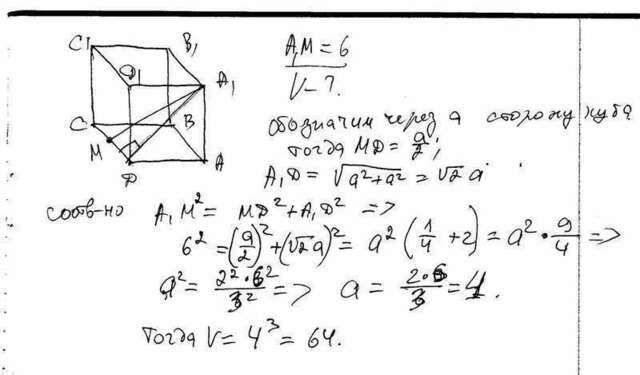 C1
B1
D1
A1
C
B
M
D
A
A₁M = 6
V – ?
обозначим через a сторону куба
тогда MD = a/2;
A₁D = √(a²+a²) = √2 a
соотв-но A₁M² = MD² + A₁D² =>
6² = (a/2)² + (√2a)² = a² (1/4 + 2) = a² · 9/4 =>
a² = 2²·6²/3² => a = 2·6/3 = 4.
тогда V = 4³ = 64.